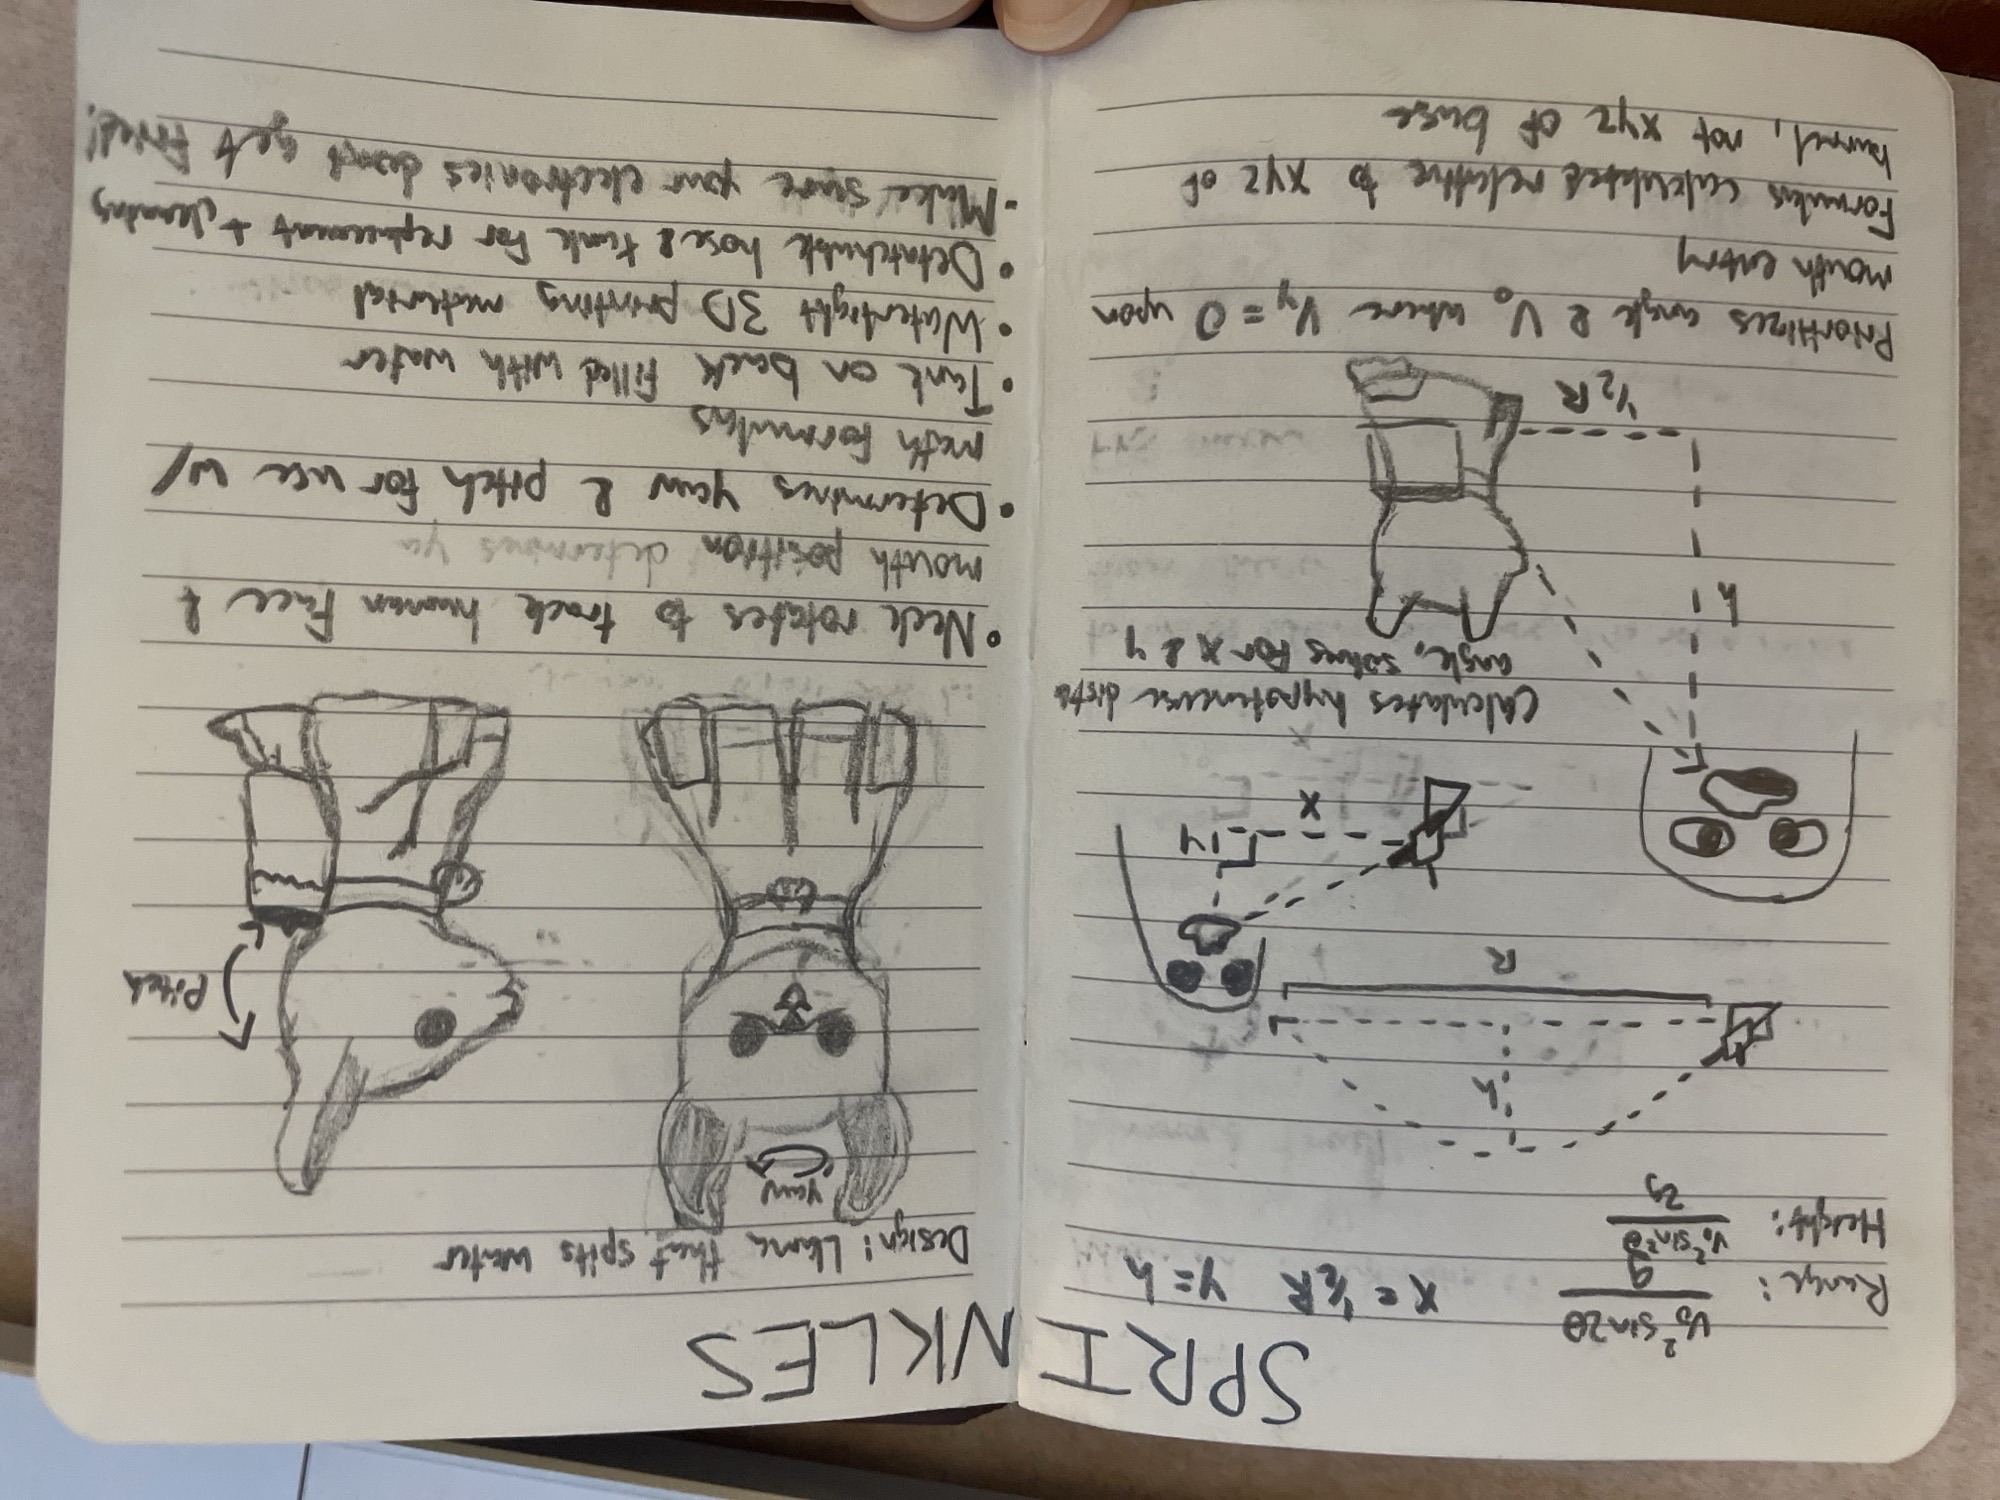 SPRINKLES
Range: V₀²sin2θ / g    x = ½R    y = h
Height: V₀²sin²θ / 2g
h
R
y
x
Calculates hypotenuse dist &
angle, solves for x & y
h
½R
Prioritizes angle & V₀ where Vy = 0 upon
mouth entry
Formulas calculated relative to xyz of
barrel, not xyz of base
Design: Llama that spits water
Yaw
Pitch
• Neck rotates to track human face &
mouth position determines ya
• Determines yaw & pitch for use w/
math formulas
• Tank on back filled with water
• Watertight 3D printing material
• Detatchable hose & tank for replacement + cleaning
• Make sure your electronics don't get fried!